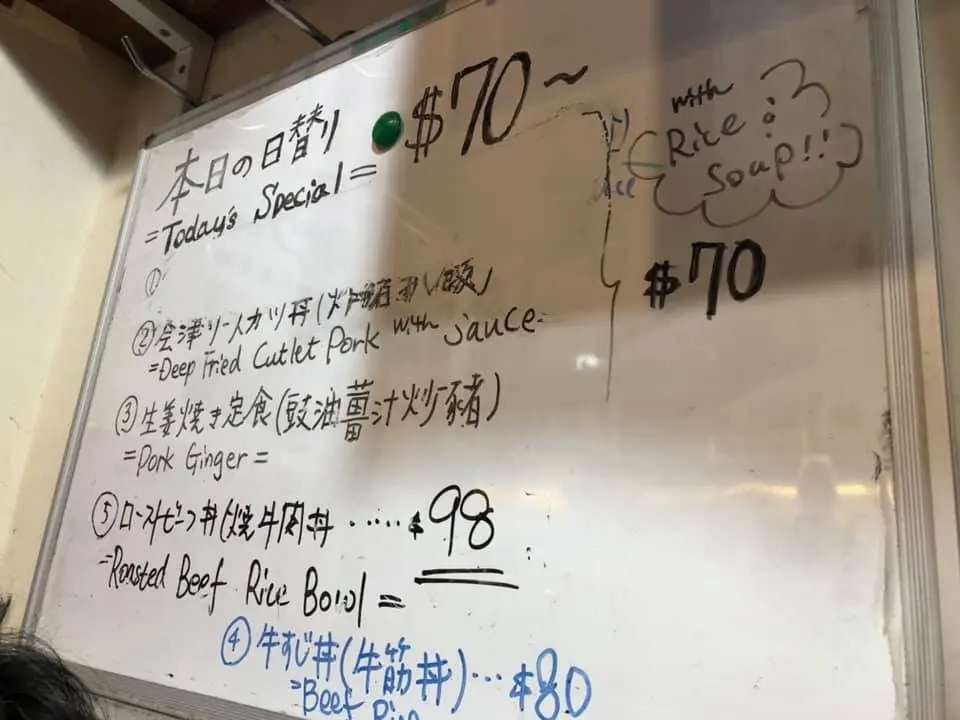 本日の日替り $70~
=Today's Special=
with
Rice &
Soup!!
$70
①
②会津ソースカツ丼(炸豬
=Deep Fried Cutlet Pork with sauce=
③生姜焼き定食(豉油薑汁炒豬)
=Pork Ginger=
⑤ローストビーフ丼(焼牛肉丼 ...... $98
=Roasted Beef Rice Bowl=
④牛すじ丼(牛筋丼)...$80
=Beef